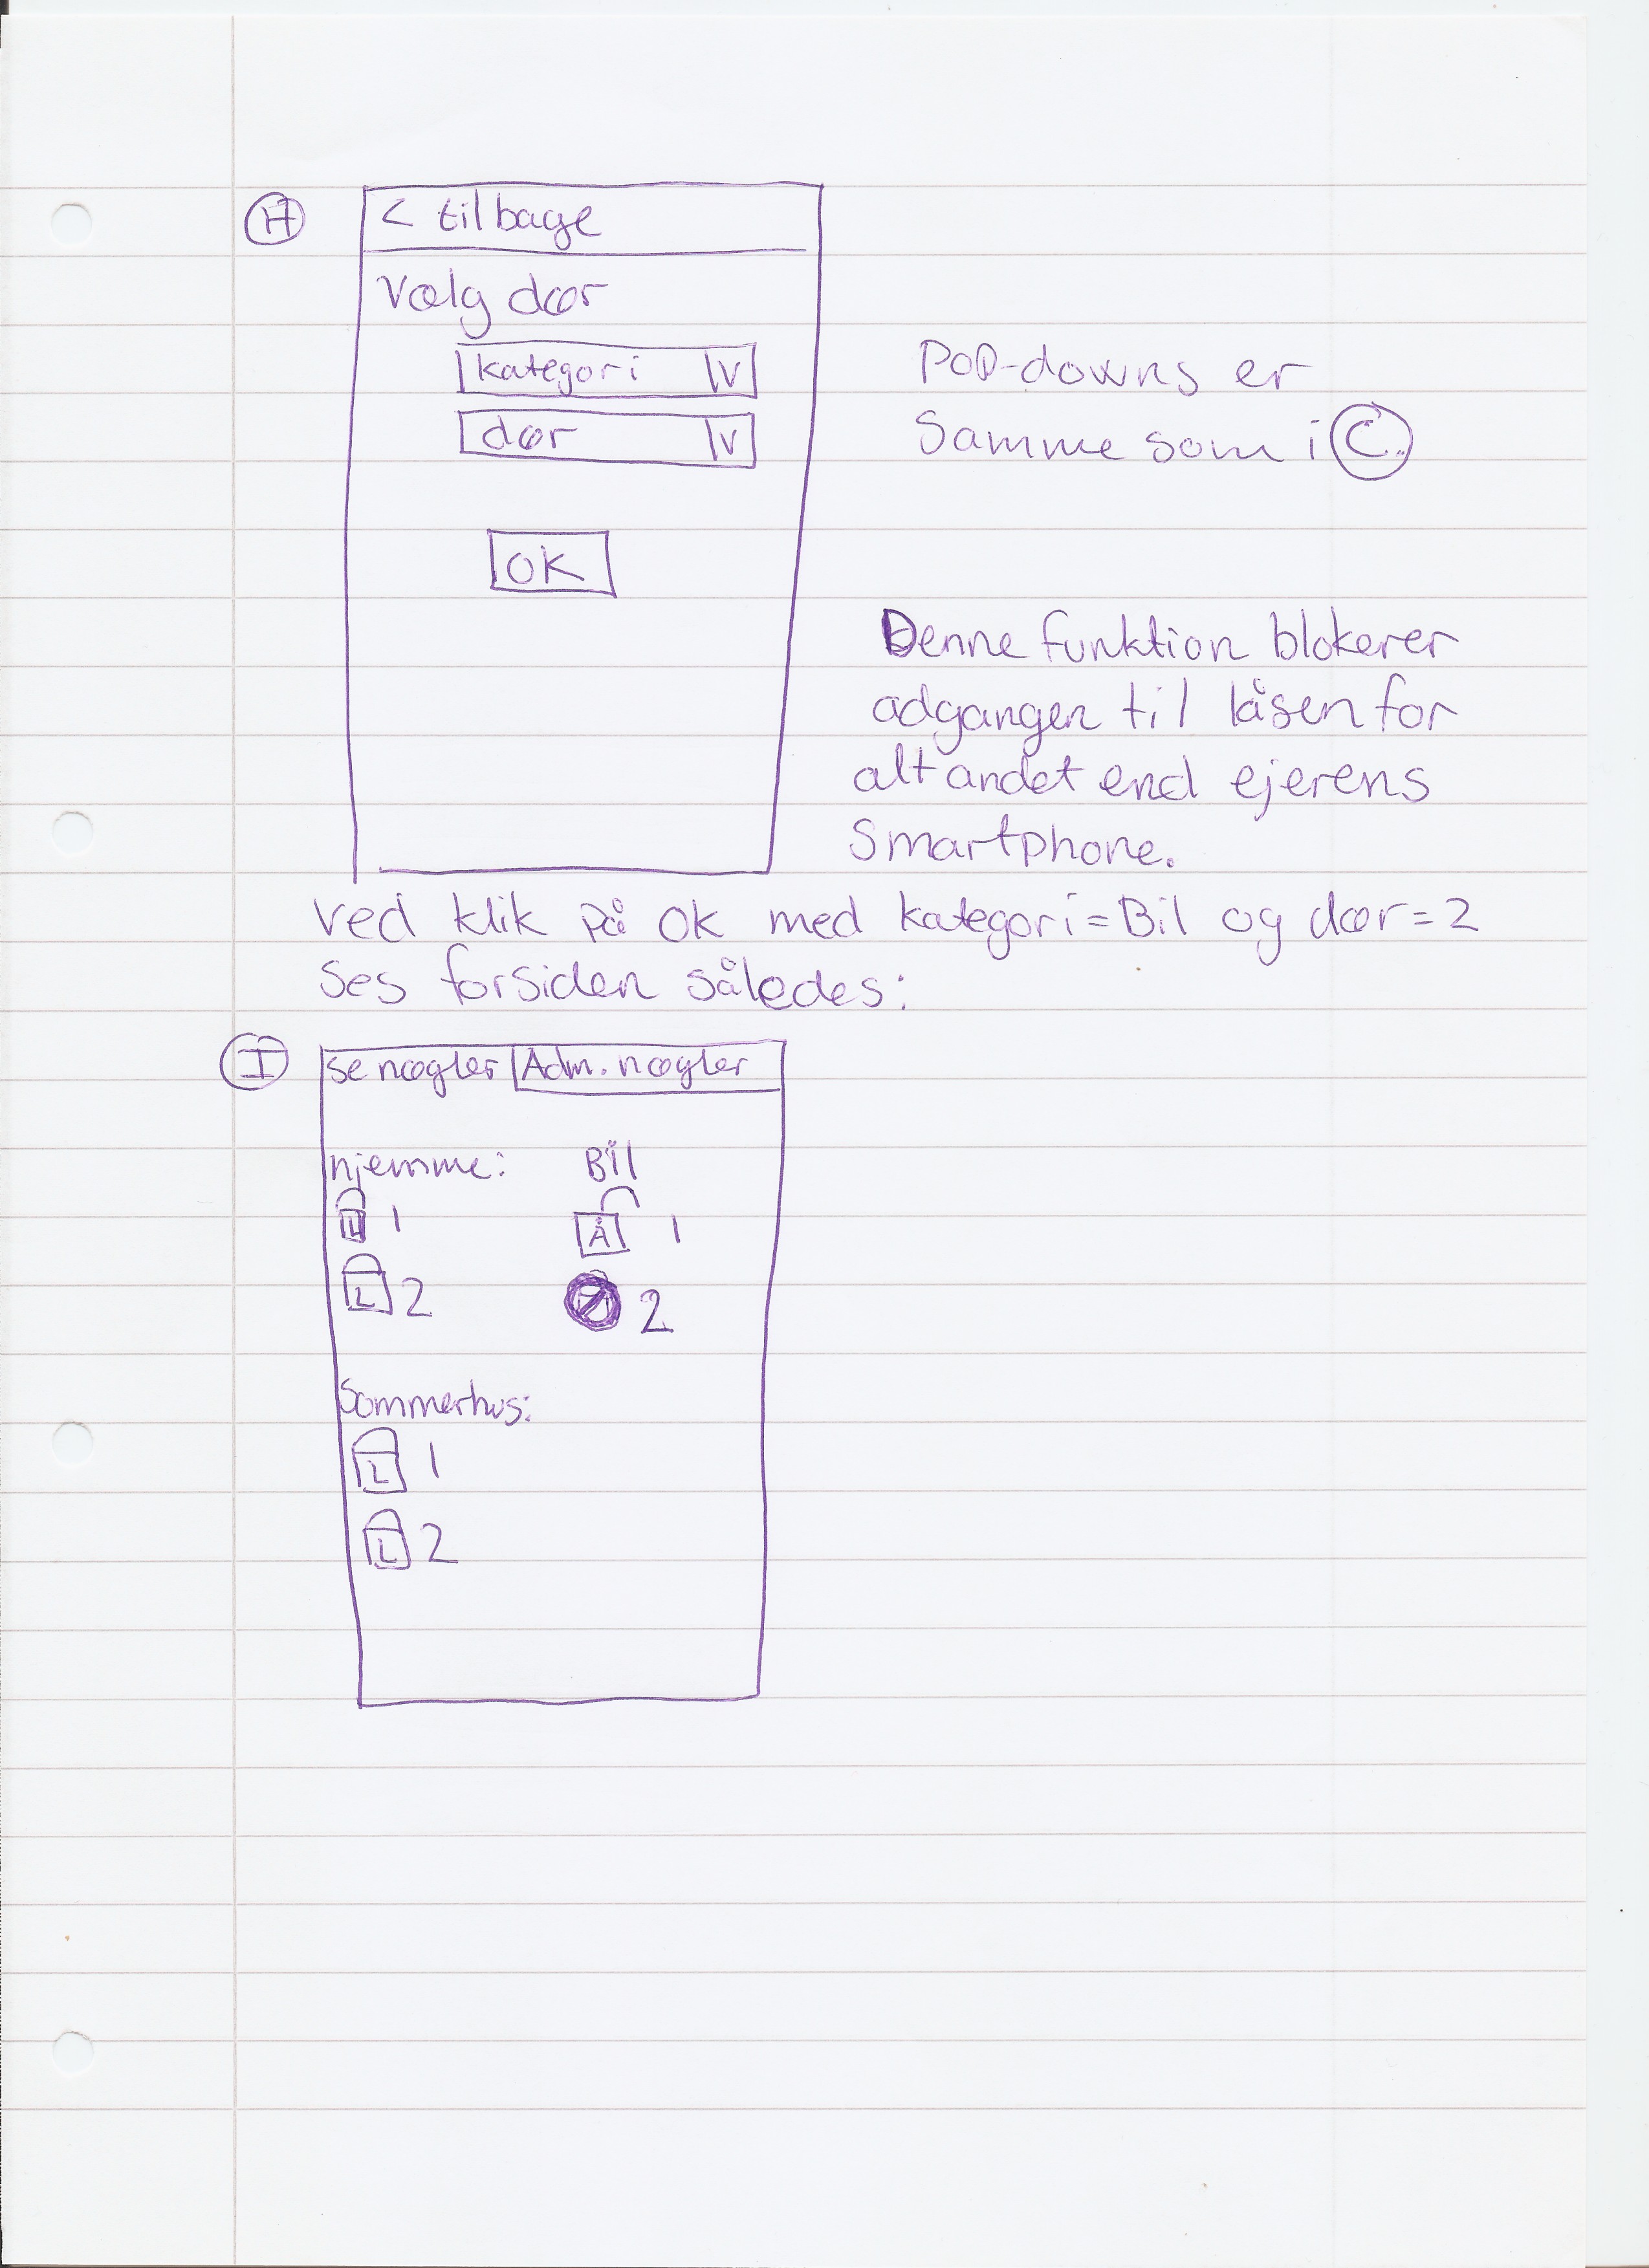 H
< tilbage
Vælg dør
kategori V
dør V
OK
Pop-downs er
Samme som i C.
Denne funktion blokerer
adgangen til låsen for
alt andet end ejerens
Smartphone.
Ved klik på OK med kategori=Bil og dør=2
Ses forsiden således:
I
Se nøgler Adm. nøgler
hjemme: Bil
L 1 Å 1
L 2 2
Sommerhus:
L 1
L 2